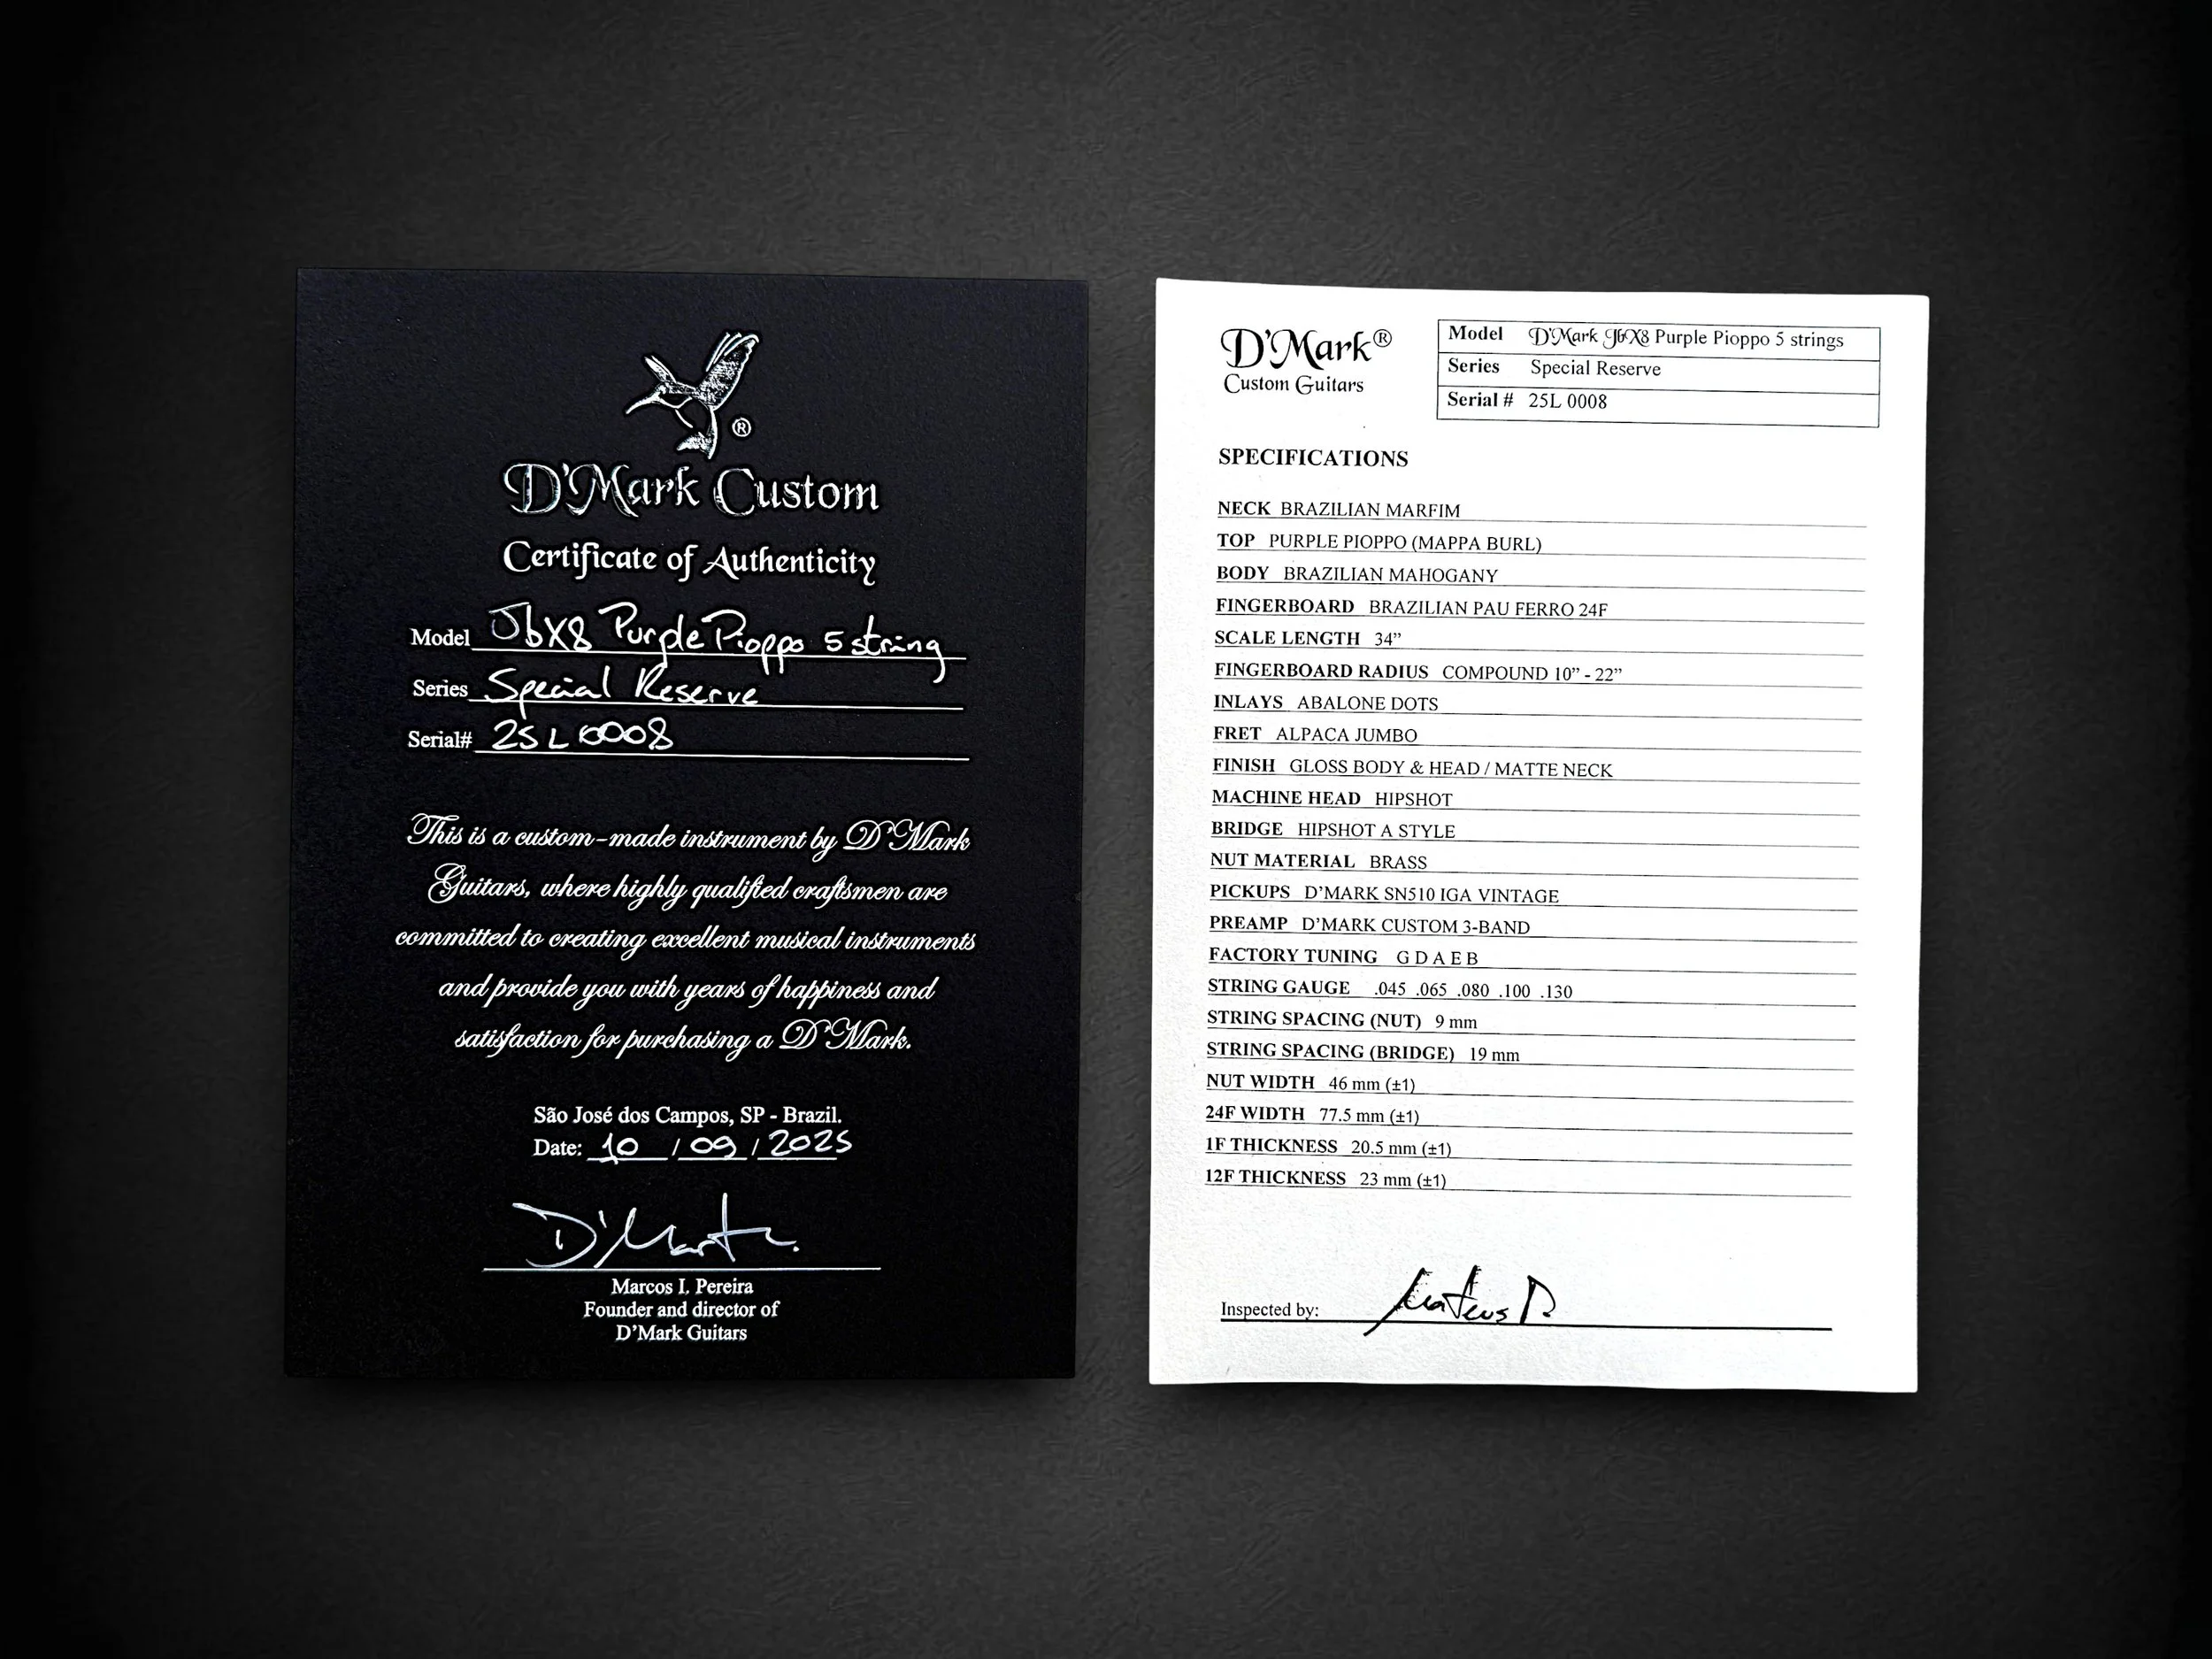 ®
D'Mark Custom
Certificate of Authenticity
Model JbX8 Purple Pioppo 5 string
Series Special Reserve
Serial# 25L 0008
This is a custom-made instrument by D'Mark
Guitars, where highly qualified craftsmen are
committed to creating excellent musical instruments
and provide you with years of happiness and
satisfaction for purchasing a D'Mark.
São José dos Campos, SP - Brazil.
Date: 10 / 09 / 2025
D'Mark.
Marcos I. Pereira
Founder and director of
D'Mark Guitars
D'Mark®
Custom Guitars
Model D'Mark JbX8 Purple Pioppo 5 strings
Series Special Reserve
Serial # 25L 0008
SPECIFICATIONS
NECK BRAZILIAN MARFIM
TOP PURPLE PIOPPO (MAPPA BURL)
BODY BRAZILIAN MAHOGANY
FINGERBOARD BRAZILIAN PAU FERRO 24F
SCALE LENGTH 34”
FINGERBOARD RADIUS COMPOUND 10” - 22”
INLAYS ABALONE DOTS
FRET ALPACA JUMBO
FINISH GLOSS BODY & HEAD / MATTE NECK
MACHINE HEAD HIPSHOT
BRIDGE HIPSHOT A STYLE
NUT MATERIAL BRASS
PICKUPS D'MARK SN510 IGA VINTAGE
PREAMP D'MARK CUSTOM 3-BAND
FACTORY TUNING G D A E B
STRING GAUGE .045 .065 .080 .100 .130
STRING SPACING (NUT) 9 mm
STRING SPACING (BRIDGE) 19 mm
NUT WIDTH 46 mm (±1)
24F WIDTH 77.5 mm (±1)
1F THICKNESS 20.5 mm (±1)
12F THICKNESS 23 mm (±1)
Inspected by: Mateus P.